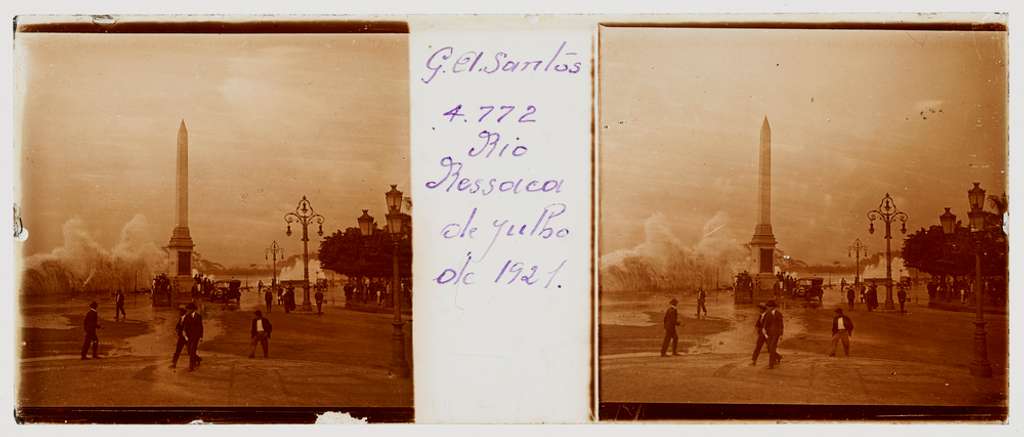 G. A. Santos
4.772
Rio
Ressaca
de julho
de 1921.